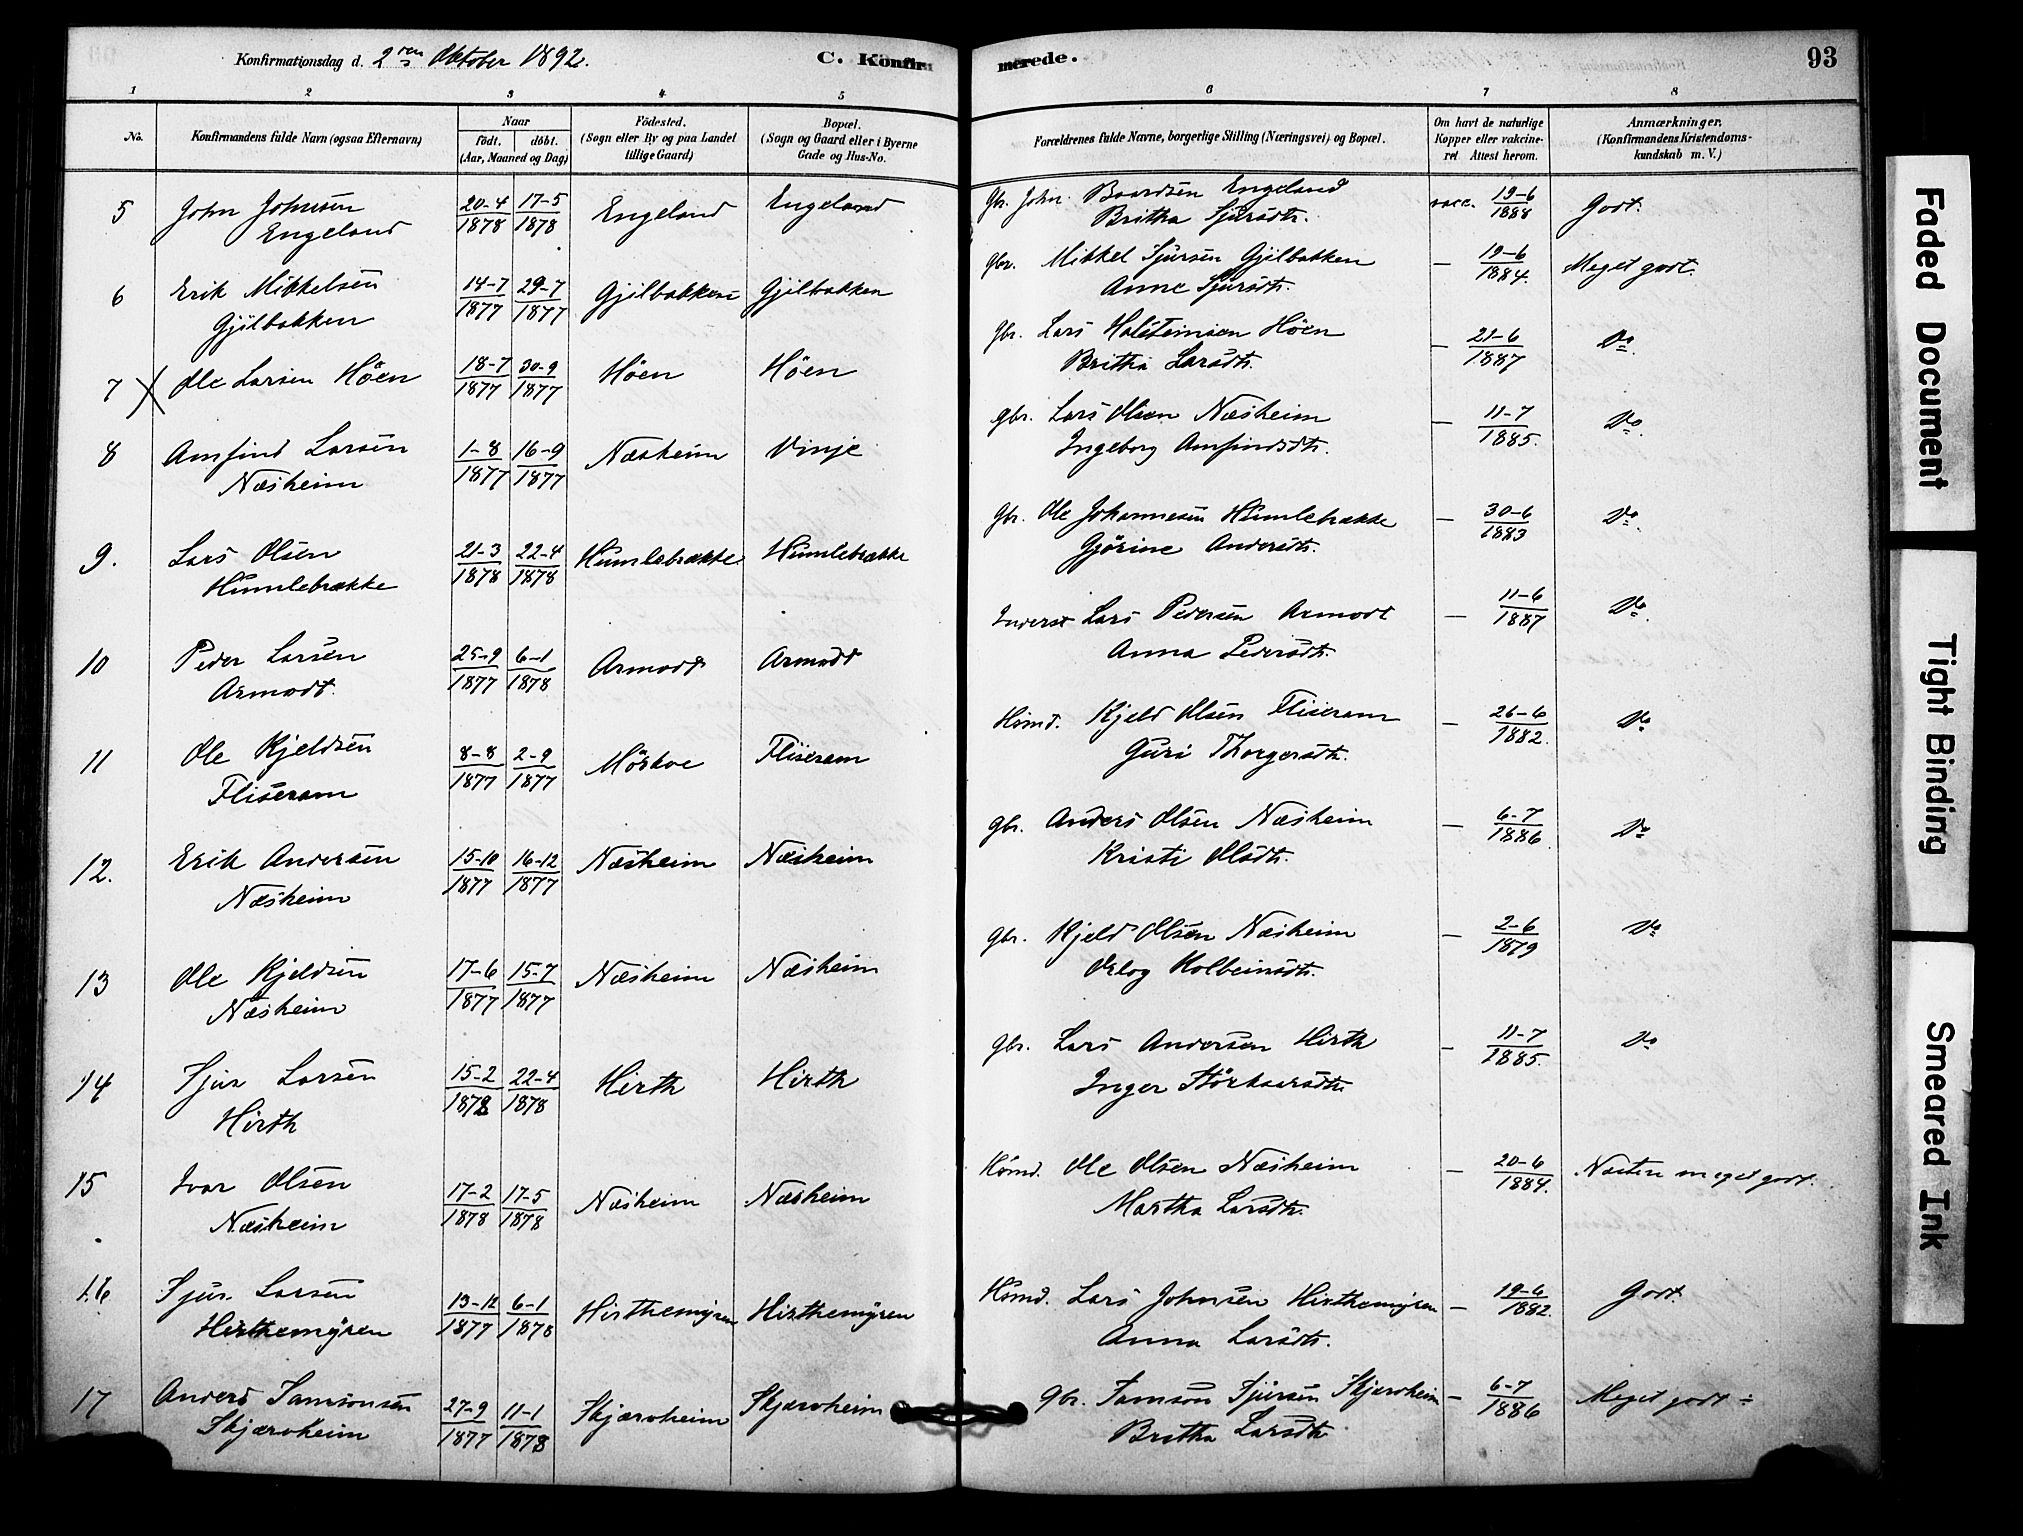 Konfirmationsdag d. 2den Oktober 1892. C. Konfirmerede. 93
1 2 3 4 5 6 7 8
No. Konfirmandens fulde Navn (ogsaa Efternavn) Naar födt. döbt. (Aar, Maaned og Dag) Födested. (Sogn eller By og paa Landet tillige Gaard) Bopæl. (Sogn og Gaard eller i Byerne Gade og Hus-No. Forældrenes fulde Navne, borgerlige Stilling (Næringsvei) og Bopæl. Om havt de naturlige Kopper eller vakcineret Attest herom. Anmærkninger. (Konfirmandens Kristendomskundskab m. V.)
5 John Johnsen Engeland 20-4 1878 17-5 1878 Engeland Engeland Gbr. John Baardsen Engeland Britha Sjursdtr. vacc. 19-6 1884 Godt.
6 Erik Mikkelsen Gjilbakken 14-7 1877 29-7 1877 Gjilbakken Gjilbakken Gbr. Mikkel Sjursen Gjilbakken Anne Sjursdtr. — 19-6 1884. Meget godt.
7 X Ole Larsen Höen 18-7 1877 30-9 1877 Höen Höen Gbr. Lars Holsteinsen Höen Britha Larsdtr. — 21-6 1887 Do.
8 Arnfind Larsen Næsheim 1-8 1877 16-9 1877 Næsheim Vinje gbr. Lars Olsen Næsheim Ingeborg Arnfindsdtr. — 11-7 1885. Do.
9. Lars Olsen Humlebrække 21-3 1878 22-4 1878 Humlebrække Humlebrække Gbr. Ole Johannesen Humlebrække Gjörine Andersdtr. — 30-6 1883 Do.
10 Peder Larsen Armodt. 25-9 1877 6-1 1878 Armodt Armodt Inderst Lars Pedersen Armodt Anna Pedersdtr. — 11-6 1887 Do.
11 Ole Kjeldsen Fliseram 8-8 1877 2-9 1877 Mörkve Fliseram Húsmd. Kjeld Olsen Fliseram Guri Thorgersdtr. — 26-6 1882. Do
12. Erik Andersen Næsheim 15-10 1877 16-12 1877 Næsheim Næsheim gbr. Anders Olsen Næsheim Kristi Olsdtr. — 6-7 1886 Do
13 Ole Kjeldsen Næsheim 17-6 1877 15-7 1877 Næsheim Næsheim gbr. Kjeld Olsen Næsheim Kolbeinsdtr. — 2-6 1879 Do
14 Sjur Larsen Hirth 15-2 1878 22-4 1878 Hirth Hirth gbr. Lars Andersen Hirth Inger Störkersdtr — 11-7 1885. Do
15 Ivar Olsen Næsheim 17-2 1878 17-5 1878 Næsheim Næsheim Húsmd. Ole Olsen Næsheim Martha Larsdtr. — 20-6 1884. Næsten meget godt.
16 Sjur Larsen Hirthemÿren 13-12 1877 6-1 1878 Hirthemÿren Hirthemÿren Húsmd. Lars Johnsen Hirthemÿren Anna Larsdtr. — 19-6 1882. Godt.
17 Anders Samsonsen Skjærvheim 27-9 1877 11-1 1878 Skjærvheim Skjærvheim Gbr. Samson Sjursen Skjærvheim Britha Larsdtr — 6-7 1886 Meget godt ÷
Faded Document
Tight Binding
Smeared Ink